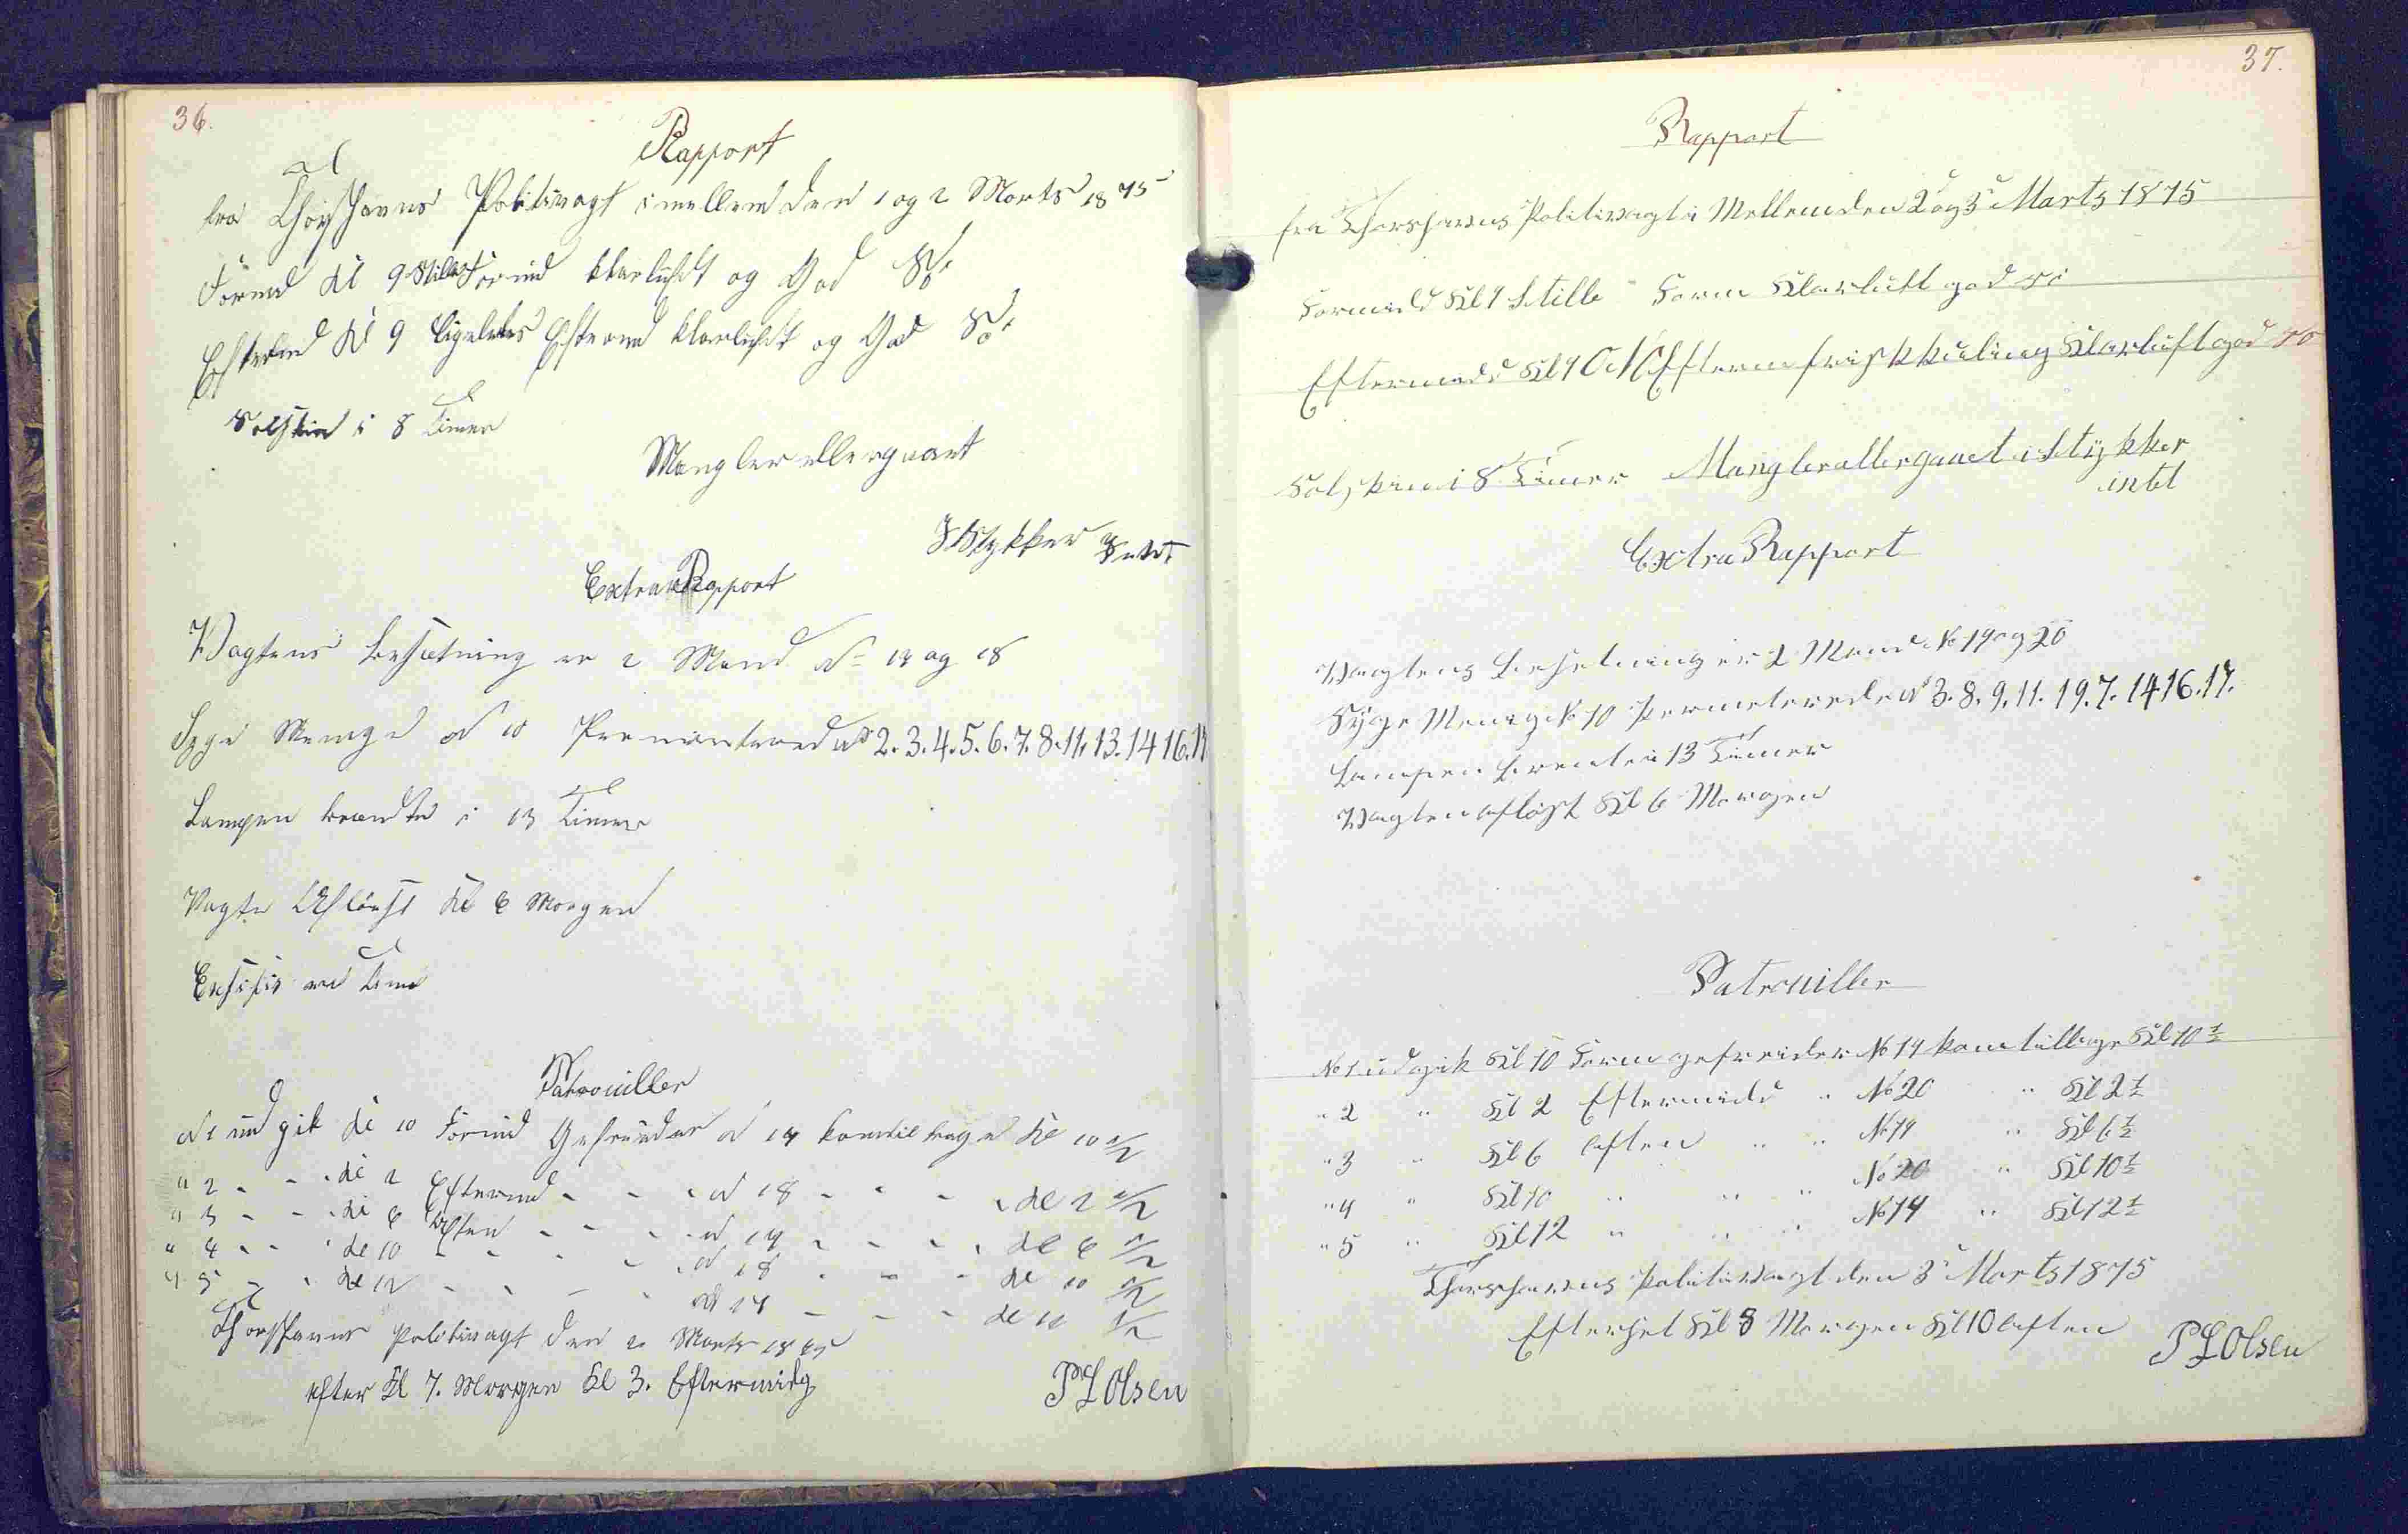 36.
Rapport
fra Thorshavns Politivagt imellem den 1 og 2 Marts 1875
Formd Kl 9 Stille Formd klarluft og God Sö
Eftermd Kl 9 ligeledes Efterm klarluft og God Sö
Solskin i 8 Timer
Mangler eller gaaet
I Stykker Intet
Extra Rapport
Vagtens Besætning er 2 Mand No 17 og 18
Syge Menige No 10 Permitered No 2.3.4.5.6.7.8.11.13.14 16.19
Lampen brændte i 13 Timer
Vagten Aflöst Kl 6 Morgen
Exsisis en Time
Patrouiller
No 1 ud gik Kl 10 Formd Gefreider No 17 kom tilbage Kl 10 1/2
" 2 " " Kl 2 Eftermd " " No 18 " " " Kl 2 1/2
" 3 " " Kl 6 Aften " " No 17 " " " Kl 6 1/2
" 4 " " Kl 10 " " " No 18 " " " Kl 10 1/2
" 5 " " Kl 12 " " " No 17 " " " Kl 12 1/2
Thorshavns Politivagt den 2 Marts 1875
efter Kl 7. Morgen Kl 3. Eftermidg
P L Olsen
37.
Rapport
fra Thorshavns Politivagt i Mellem den 2 og 3 Marts 1875
Formidd Kl 9 Stille Form Klarluft god Sö
Eftermidd Kl 9 ONO Efterm frisk kuling Klarluft god Sö
Solskin i 8 Timer Mangler eller gaaet i Stykker
intet
Extra Rapport
Vagtens Besetning er 2 Mand No 19 og 20
Syge Menig No 10 Permiterede No 3.8.9.11.19.7.14 16.17.
Lampen brendte i 13 Timer
Vagten aflöst Kl 6 Morgen
Patrouiller
No 1 udgik Kl 10 Form gefreider No 19 kom tilbage Kl 10 1/2
" 2 " Kl 2 Eftermidd " No 20 " Kl 2 1/2
" 3 " Kl 6 Aften " " No 19 " Kl 6 1/2
" 4 " Kl 10 " " " No 20 " Kl 10 1/2
" 5 " Kl 12 " " " No 19 " Kl 12 1/2
Thorshavns Politivagt den 3 Marts 1875
Efterset Kl 8 Morgen Kl 10 Aften
P L Olsen